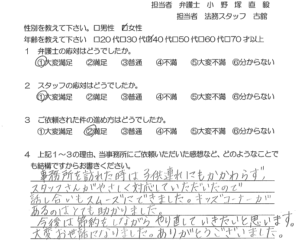 担当者 弁護士 小野塚 直毅
担当者 法務スタッフ 古舘
性別を教えて下さい。□男性 ☑女性
年齢を教えて下さい □20代□30代☑40代□50代□60代□70才以上
1 弁護士の応対はどうでしたか。
①大変満足 ②満足 ③普通 ④不満 ⑤大変不満 ⑥分からない
2 スタッフの応対はどうでしたか。
①大変満足 ②満足 ③普通 ④不満 ⑤大変不満 ⑥分からない
3 ご依頼された件の進め方はどうでしたか。
①大変満足 ②満足 ③普通 ④不満 ⑤大変不満 ⑥分からない
4 上記1～3の理由、当事務所にご依頼いただいた感想など、どのようなことで
も結構ですからお書きください。
事務所を訪れた時は子供連れにもかかわらず、
スタッフさんがやさしく対応していただいたので
話し合いもスムーズにできました。キッズコーナーが
あるのはとても助かりました。
今後は節約をしながらやり直していきたいと思います。
大変お世話になりました。ありがとうございました。